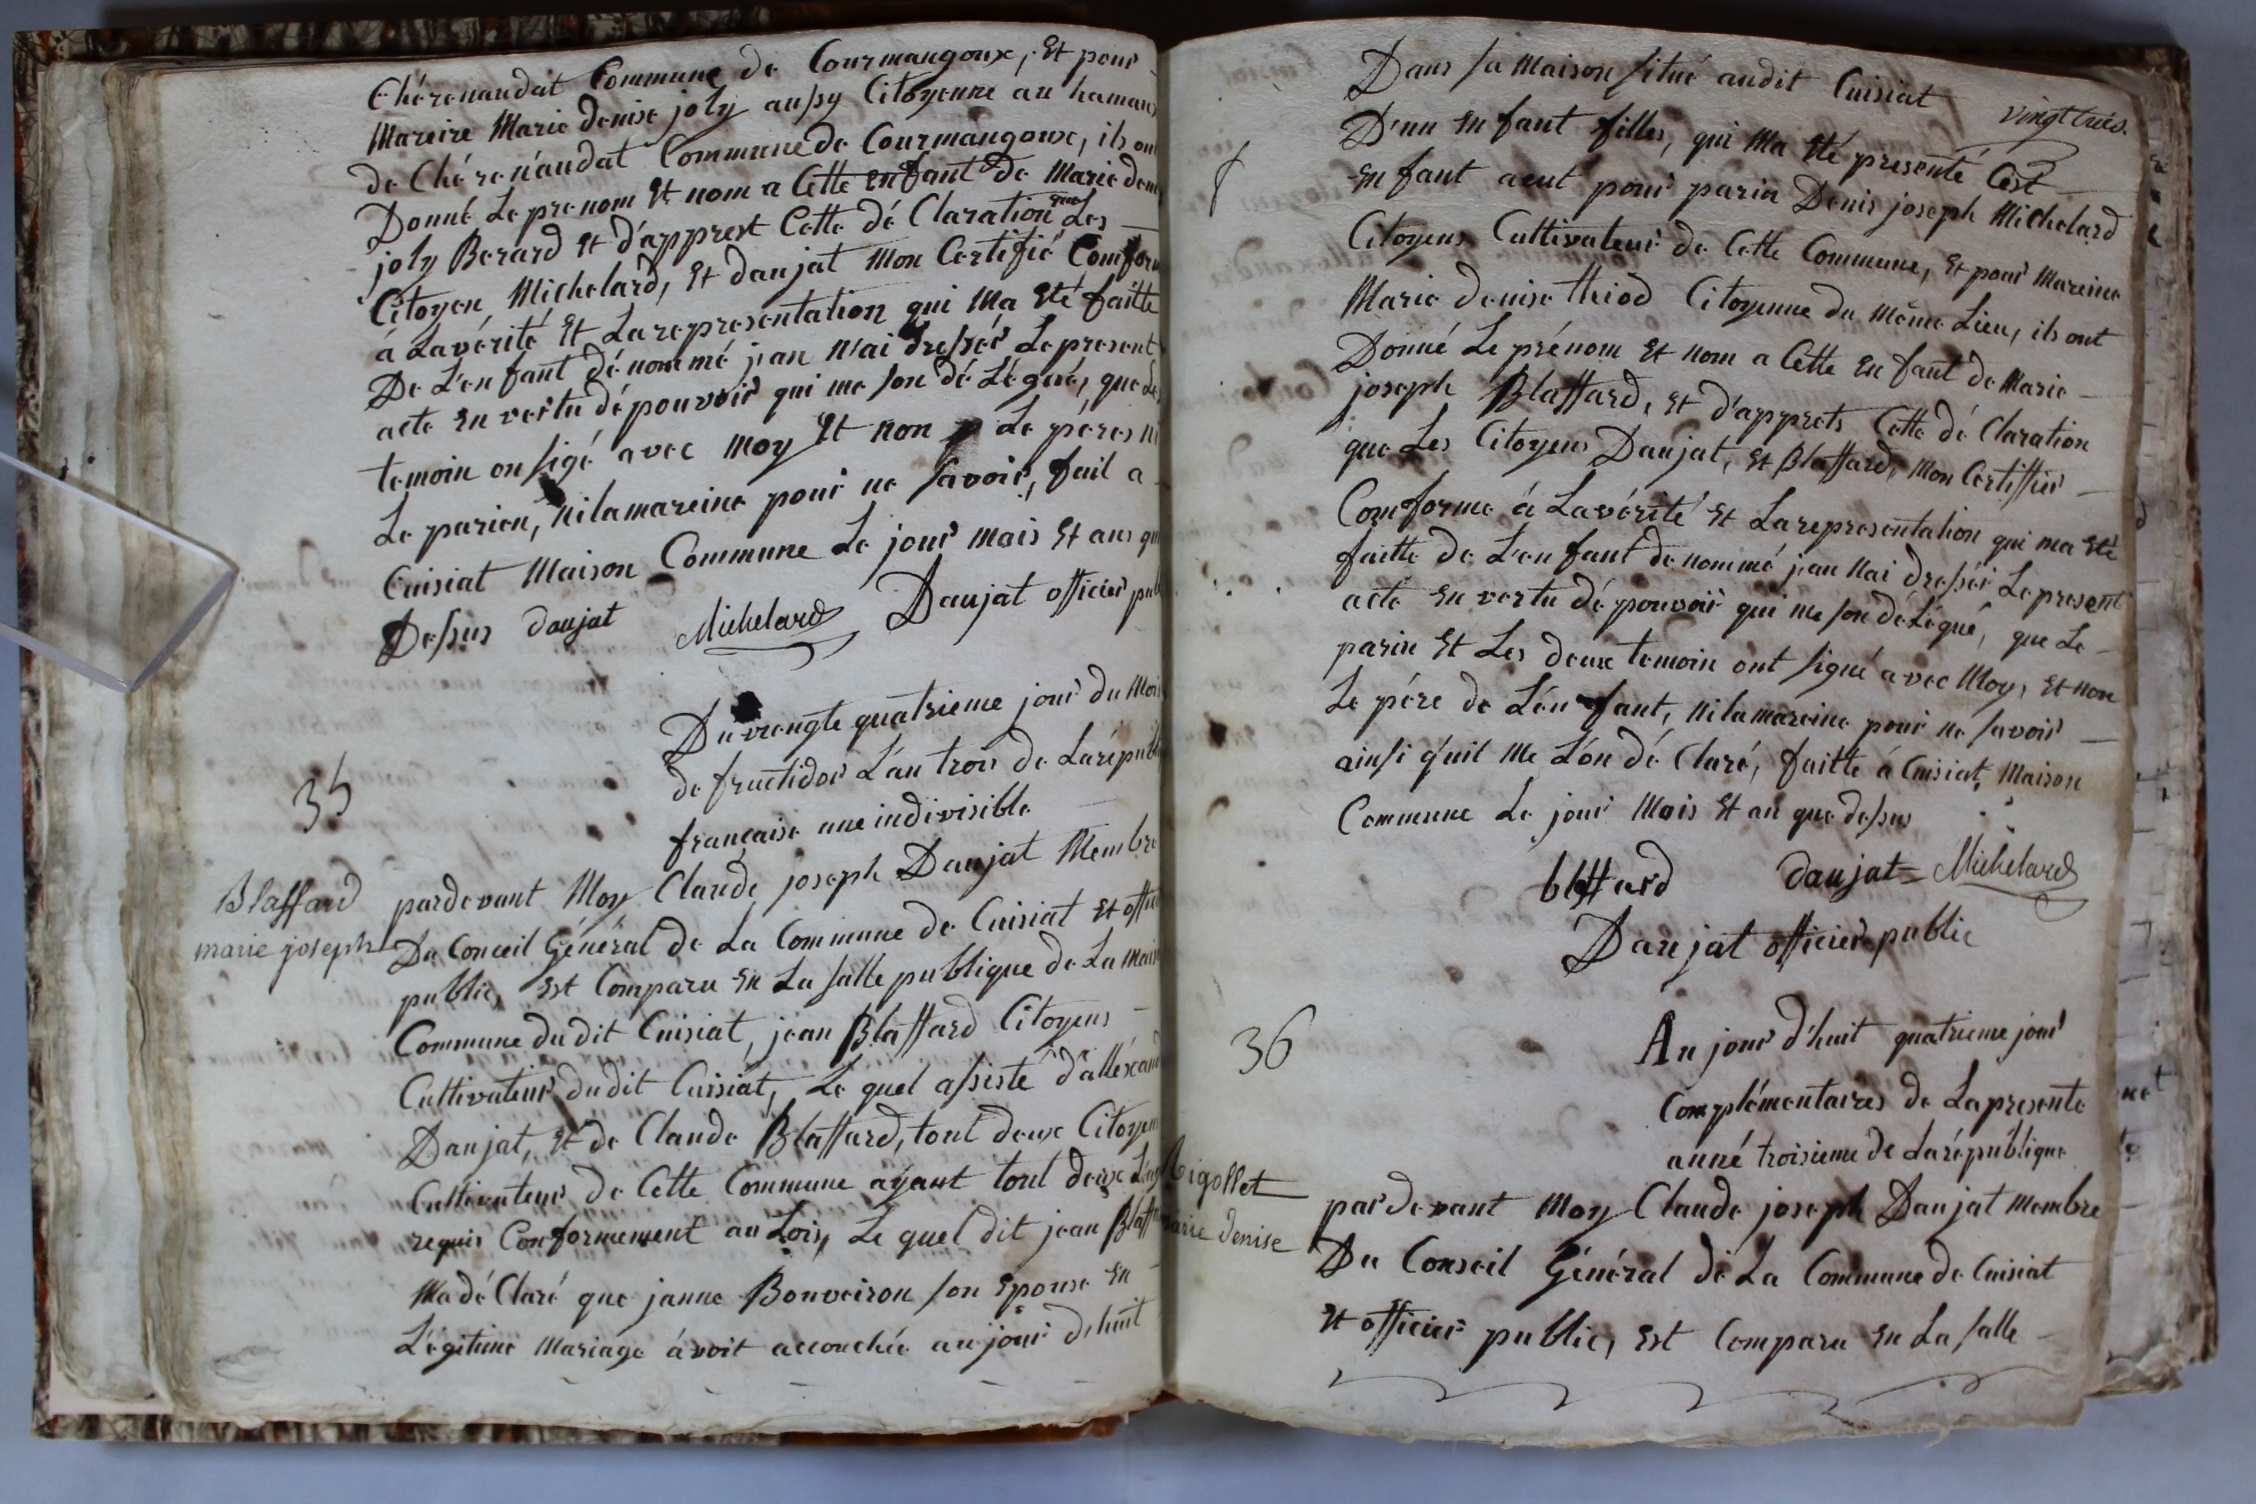 Chérenaudat Commune de Courmangoux, Et pour
Mareire Marie denise joly aussy Citoyenne au hamaux
de Chérenaudat Commune de Courmangoux, ils on
Donné Le prenom Et nom a Cette enfant de Marie deni
joly Berard Et d'apprest Cette déClaration que Les
Citoyen Michelard, Et daujat Mon Certifié Comform
á La vérité Et La representation qui Ma Eté faitte
De L'enfant dénommé jean N'ai dressér Le present
acte En vertu dé pouvoir qui me son déLégué, que Le
temoin on sigé avec Moy Et non p Le péres ni
Le parien, ni la mareine pour ne savoir, fait a
Cuisiat Maison Commune Le jour mais Et ans que
Dessus daujat Michelard Daujat officier publ
35
Du vrengte quatrieme jour du Mois
de fructidor L'an trois de La républi
française une indivisible
Blaffard
marie joseph
pardevant Moy Claude joseph Daujat Membre
Du Conceil Général de La Commune de Cuisiat et offici
public, Est Comparu En La salle publique de La maiso
Commune du dit Cuisiat, jean Blaffard Citoyens
Cultivateur dudit Cuisiat, Le quel assisté d'alléxand
Daujat, Et de Claude Blaffard, tout deux Citoyen
Cultivateur de Cette Commune ayant tout deux L'ag
requis Conformement au Loix, Le quel dit jean Blaffa
Ma déClaré que janne Bonvoiron son Epouse En
Légitime Mariage ávoit accouchée au jour dhuit
vingt trois.
Dans sa Maison situé audit Cuisiat
D'nn Enfant filles, qui Ma Eté presenté Cest
Enfant aeut pour parin Denis joseph Michelard
Citoyens Cultivateur de Cette Commune, Et pour Mareine
Marie denise thiod Citoyenne du même Lieu, ils ont
Donné Le prénom Et nom a Cette Enfant de Marie
joseph Blaffard, Et d'apprets Cette déClaration
que Les Citoyens Daujat, Et Blaffard, Mon Certiffier
Comforme á La vérité Et La representation qui ma Eté
faitte de L'enfant denommé jean Nai dressér Le present
acte En vertu dé pouvoir qui me son déLégué, que Le
parin Et Les deux temoin ont signé avec Moy, Et non
Le pére de L'énfant, ni la mareine pour ne savoir
ainsi quil me L'ón déClaré, faitte á Cuisiat, Maison
Commune Le jour Mais Et an que dessus
blaffard daujat Michelard
Daujat officier public
36
Au jour d'huit quatrieme jour
Complémentaires de La presente
anné troisieme de La république
Rigollet
marie denise
pardevant Moy Claude joseph Daujat Membre
Du Conseil Général de La Commune de Cuisiat
Et officier public, Est Comparu En La salle